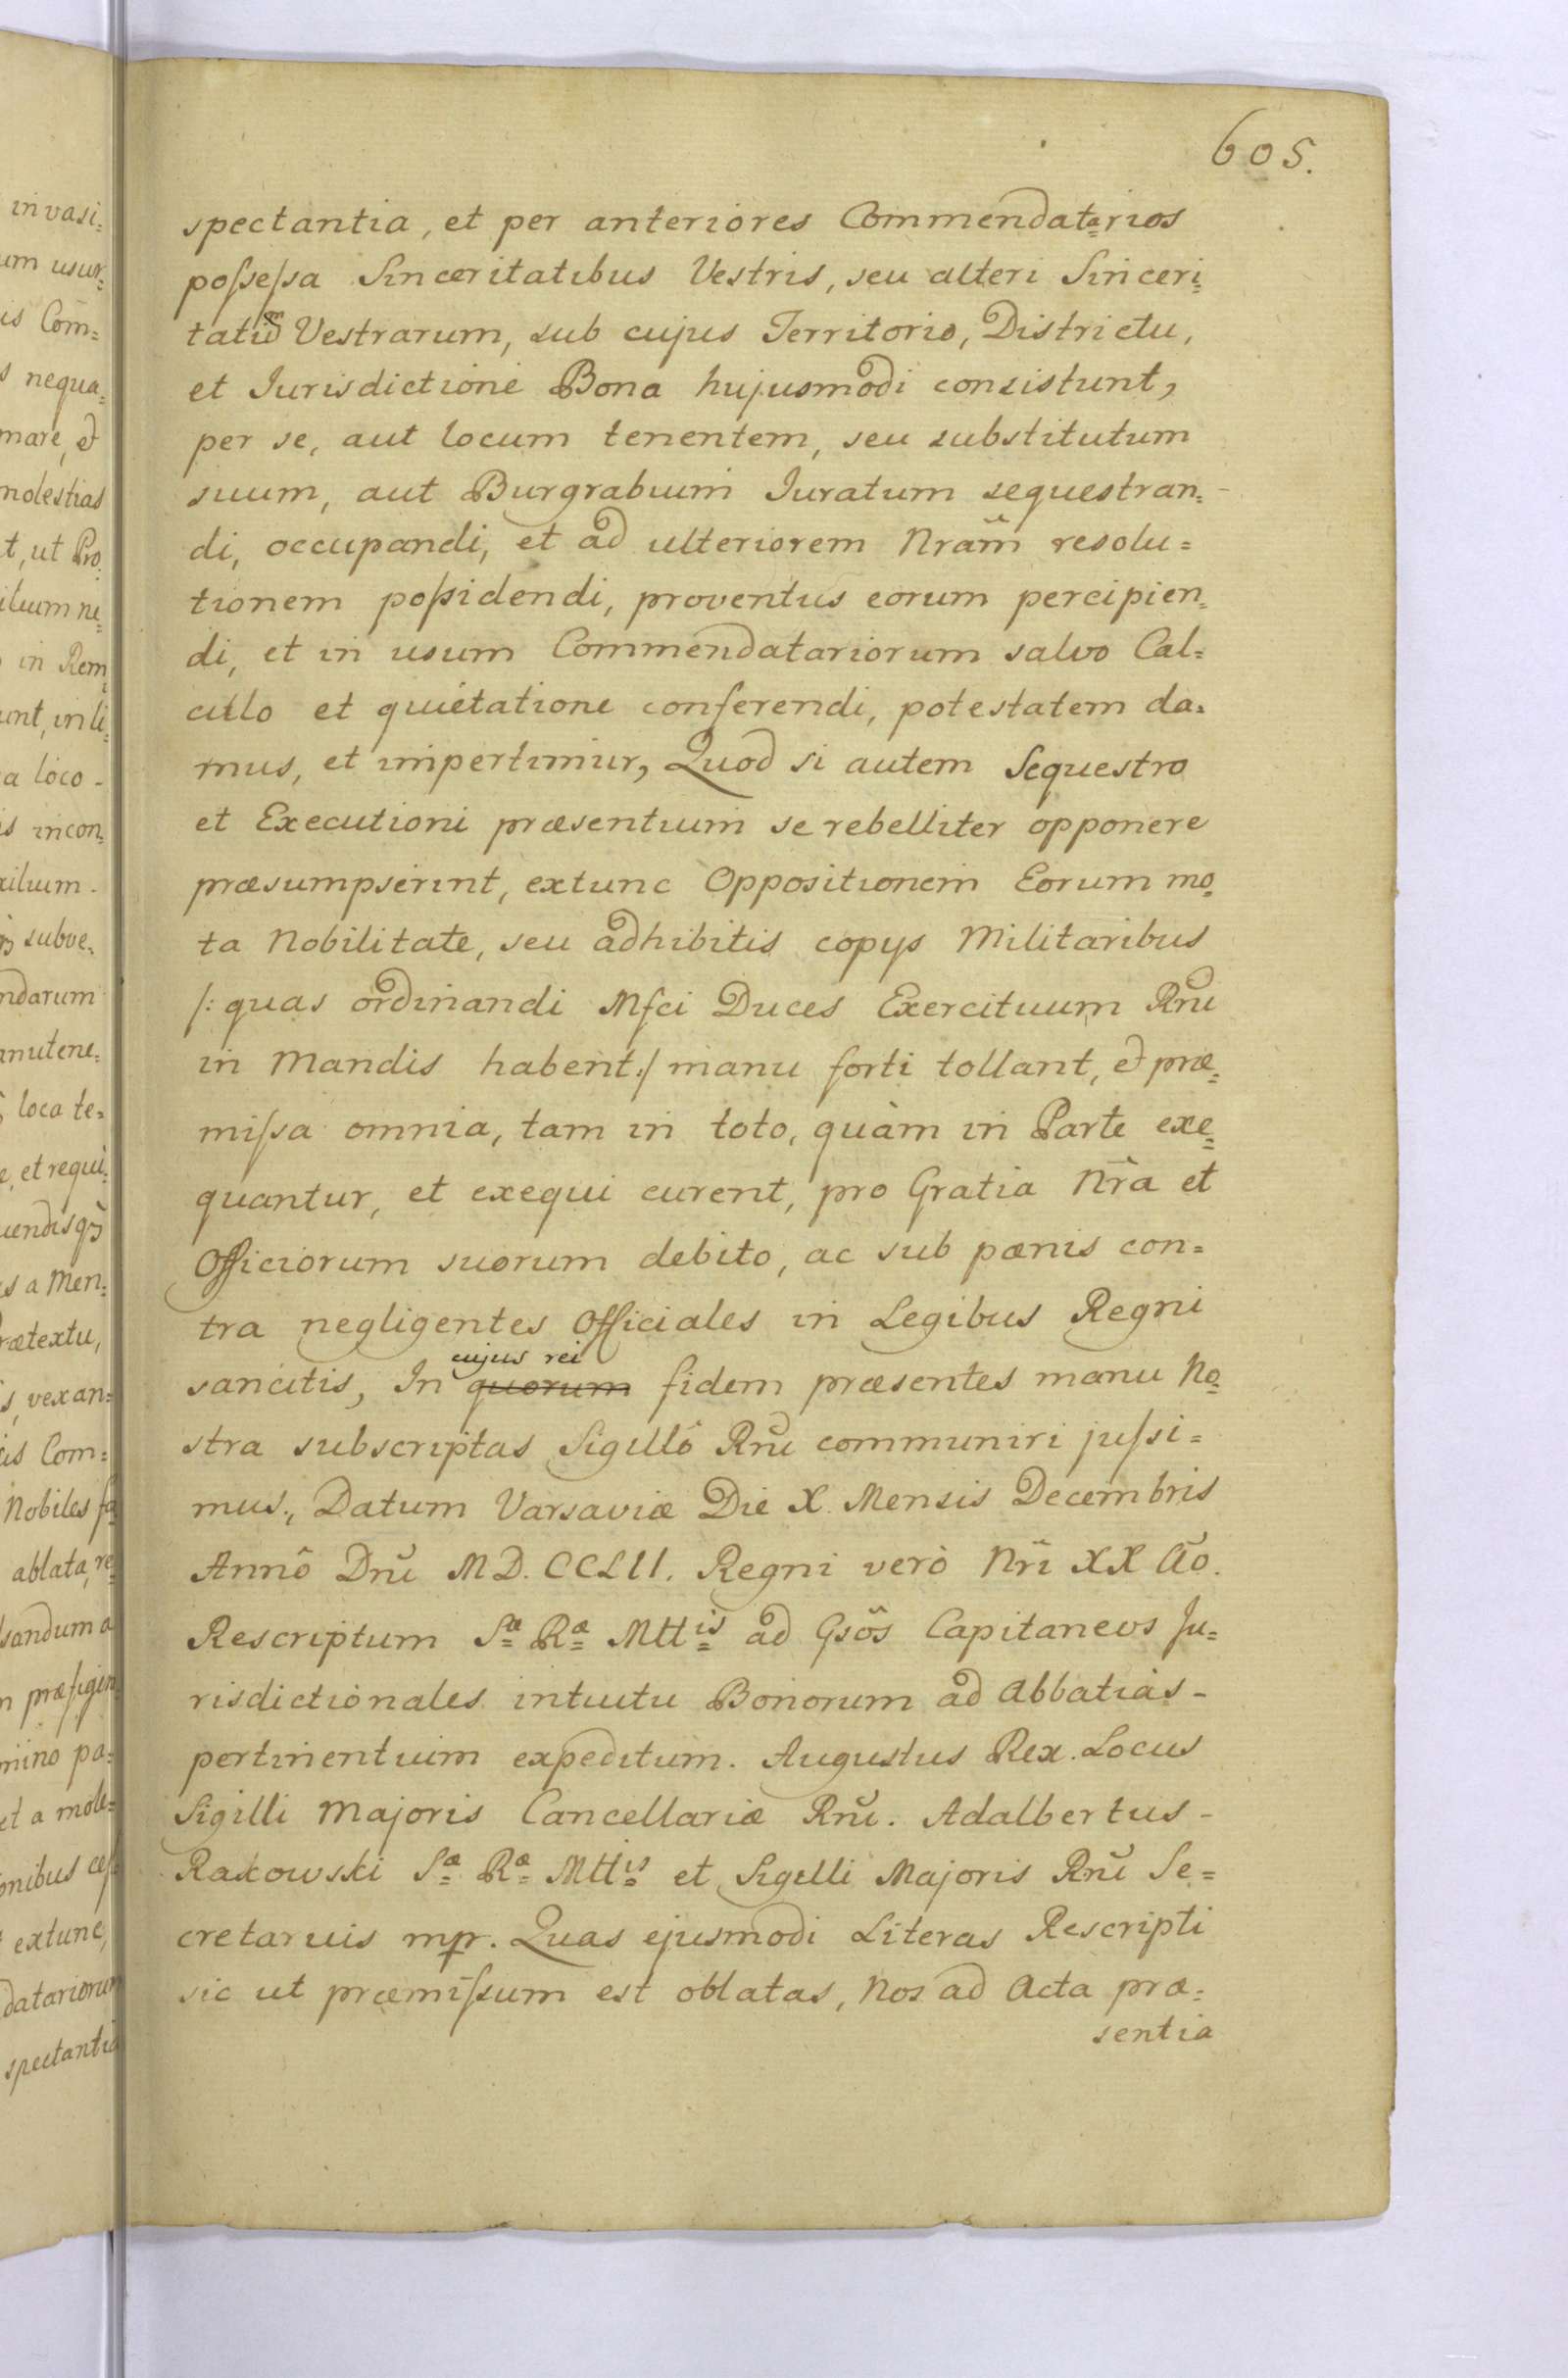 605.
spectantia, et per anteriores Commendatarios
poſseſsa Sinceritatibus Vestris, seu alteri Sinceri=
tatum Vestrarum, sub cujus Territorio, Districtu,
et Jurisdictione Bona hujusmodi consistunt,
per se, aut locum tenentem, seu substitutum
suum, aut Burgrabium Juratum sequestran=
di, occupandi, et ad ulteriorem Nrãm resolu=
tionem poſsidendi, proventus eorum percipien=
di, et in usum Commendatariorum salvo Cal=
culo et quietatione conferendi, potestatem da=
mus, et impertimur, Quod si autem Sequestro
et Executioni præsentium se rebelliter opponere
præsumpserint, extunc Oppositionem Eorum mo=
ta Nobilitate, seu adhibitis copys Militaribus
/: quas ordinandi Mfci Duces Exercituum Rñi
in Mandis habent :/ manu forti tollant, et præ=
miſsa omnia, tam in toto, quàm in Parte exe=
quantur, et exequi curent, pro Gratia Nr̃a et
Officiorum suorum debito, ac sub pœnis con=
tra negligentes Officiales in Legibus Regni
sancitis, In quorum cujus rei fidem præsentes manu No=
stra subscriptas Sigillô Rñi communiri juſsi=
mus., Datum Varsaviæ Die X. Mensis Decembris
Annô Dñi MD.CCLII. Regni verò Nr̃i XX Ão.
Rescriptum Sæ Ræ Mttis ad Gsõs Capitaneos Ju=
risdictionales intuitu Bonorum ad Abbatias -
pertinentium expeditum. Augustus Rex. Locus
Sigilli Majoris Cancellariæ Rñi. Adalbertus -
Rakowski Sæ Ræ Mttis et Sigilli Majoris Rñi Se=
cretarius mpr. Quas ejusmodi Literas Rescripti
sic ut præmiſsum est oblatas, Nos ad Acta præ=
sentia